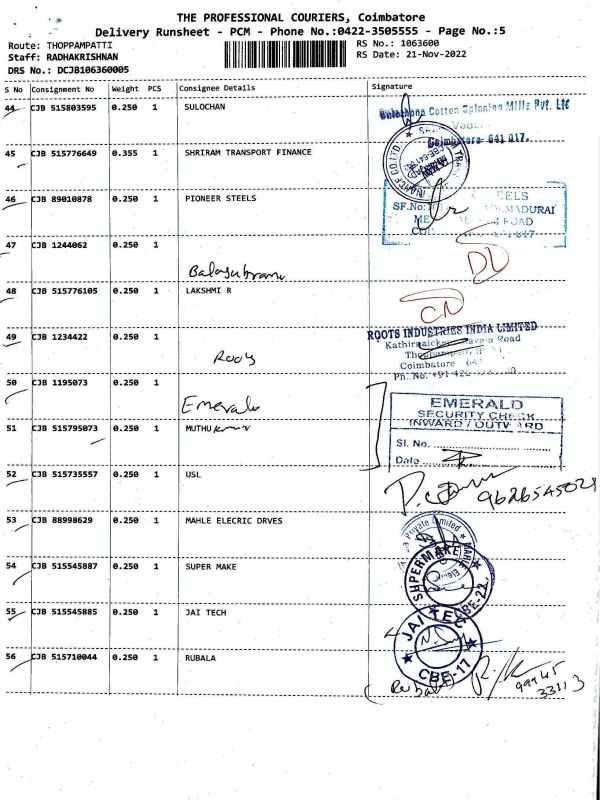 THE PROFESSIONAL COURIERS, Coimbatore
Delivery Runsheet - PCM - Phone No.:0422-3505555 - Page No.:5
Route: THOPPAMPATTI
RS No.: 1063600
Staff: RADHAKRISHNAN
RS Date: 21-Nov-2022
DRS No.: DCJB106360005
S No Consignment No Weight PCS Consignee Details Signature
44 CJB 515803595 0.250 1 SULOCHAN
Sulochana Cotton Spinning Mills Pvt. Ltd
Coimbatore 641 017.
45 CJB 515776649 0.355 1 SHRIRAM TRANSPORT FINANCE
46 CJB 89010878 0.250 1 PIONEER STEELS
SF.No:
MADURAI
ROAD
47 CJB 1244062 0.250 1
48 CJB 515776105 0.250 1 LAKSHMI R
49 CJB 1234422 0.250 1
Roots
ROOTS INDUSTRIES INDIA LIMITED
Road
Coimbatore
Ph. No: +91-422
50 CJB 1195073 0.250 1
Emerald
EMERALD
SECURITY CHECK
INWARD / OUTWARD
Sl. No.
Date
51 CJB 515795073 0.250 1 MUTHU kumar
52 CJB 515735557 0.250 1 USL
53 CJB 88998629 0.250 1 MAHLE ELECRIC DRVES
Private Limited
54 CJB 515545887 0.250 1 SUPER MAKE
SUPERMAKE
CBE-22
55 CJB 515545885 0.250 1 JAI TECH
JAI TECH
CBE-17
56 CJB 515710044 0.250 1 RUBALA
99945
33113